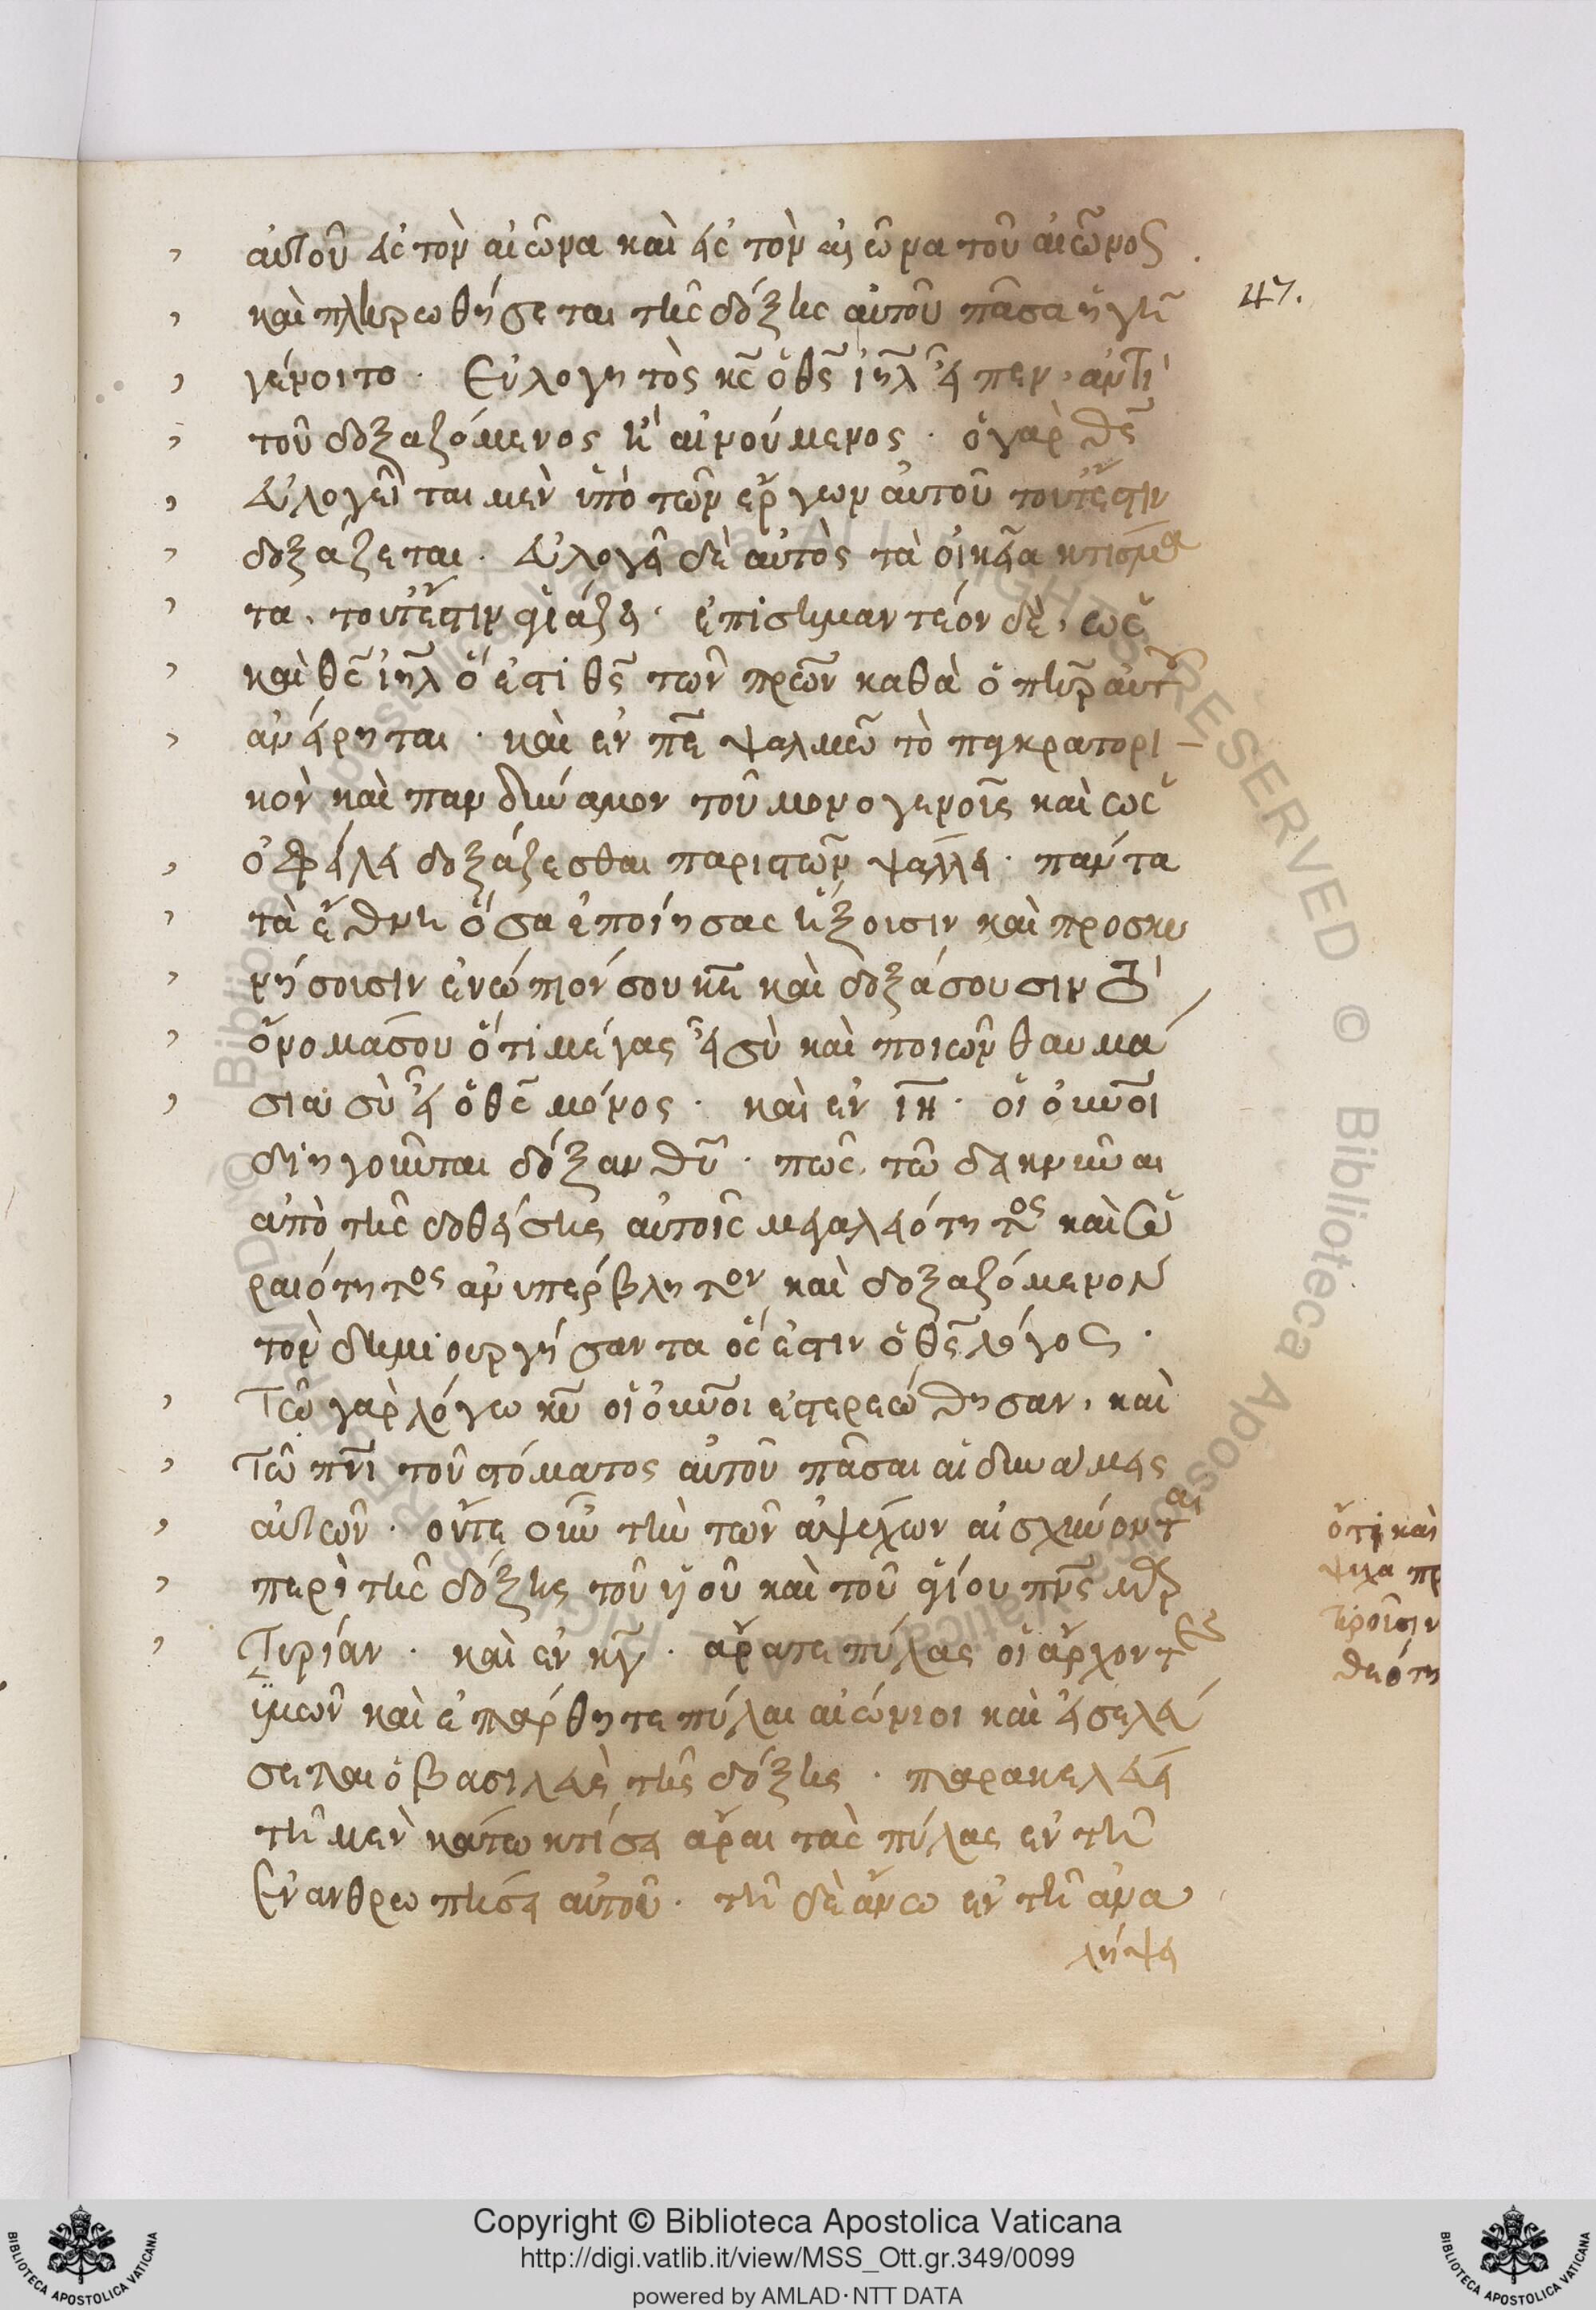 αὐτοῦ εἰς τὸν αἰῶνα καὶ εἰς τὸν αἰῶνα τοῦ αἰῶνος
47.
καὶ πληρωθήσεται τῆς δόξης αὐτοῦ πᾶσα ἡ γῆ
γένοιτο. Εὐλογητὸς κς ὁ θς ιηλ εἶπεν, ἀντὶ
τοῦ δοξαζόμενος ἢ αἰνούμενος. ὁ γὰρ θς
εὐλογεῖται μὲν ὑπὸ τῶν ἔργων αὐτοῦ τουτέστιν
δοξάζεται. εὐλογεῖ δὲ αὐτὸς τὰ οἰκεῖα κτίσμα
τα, τουτέστιν ἁγιάζει. ἐπισημαντέον δὲ, ὡς
καὶ θς ιηλ ὅ ἐστι θς τῶν πρων καθὰ ὁ πηρ αὐτοῦ
ἀνείρηται. καὶ ἐν πε ψαλμῶ τὸ παγκρατορι
κὸν καὶ πανδύναμον τοῦ μονογενοῦς καὶ ὡς
ὀφείλει δοξάζεσθαι παριστῶν ψάλλει. πάντα
τὰ ἔθνη ὅσα ἐποίησας ἥξουσιν καὶ προσκυ
νήσουσιν ἐνώπιόν σου κε καὶ δοξάσουσιν τὸ
ὄνομά σου ὅτι μέγας εἶ σὺ καὶ ποιῶν θαυμά
σια σὺ εἶ ὁ θς μόνος. καὶ ἐν ιη. οἱ οὐνοι
διηγοῦνται δόξαν θυ. πῶς, τῶ δεικνῦναι
ἀπὸ τῆς δοθείσης αὐτοῖς μεγαλειότητος καὶ ὡ
ραιότητος ἀνυπέρβλητον καὶ δοξαζόμενον
τὸν δημιουργήσαντα ὅς ἐστιν ὁ θς λόγος.
Τῶ γὰρ λόγω κυ οἱ οὐνοι ἐστερεώθησαν, καὶ
Τῶ πνι τοῦ στόματος αὐτοῦ πᾶσαι αἱ δυνάμεις
αὐτῶν. οὔτε οὖν τὴν τῶν ἀψύχων αἰσχύνονται
περὶ τῆς δόξης τοῦ υἱοῦ καὶ τοῦ ἁγίου πνς μαρ
Τυρίαν. καὶ ἐν κγ. ἄρατε πύλας οἱ ἄρχοντες
ὑμῶν καὶ ἐπάρθητε πύλαι αἰώνιοι καὶ εἰσελεύ
σεται ὁ βασιλεὺς τῆς δόξης. παρακελεύει
τῆ μὲν κάτω κτίσει ἆραι τὰς πύλας ἐν τῆ
Ἐνανθρωπήσει αὐτοῦ. τῆ δὲ ἄνω ἐν τῆ ἀνα
λήψει
ὅτι καὶ
θεότη
Copyright © Biblioteca Apostolica Vaticana
http://digi.vatlib.it/view/MSS_Ott.gr.349/0099
powered by AMLAD·NTT DATA
BIBLIOTECA APOSTOLICA VATICANA
BIBLIOTECA APOSTOLICA VATICANA